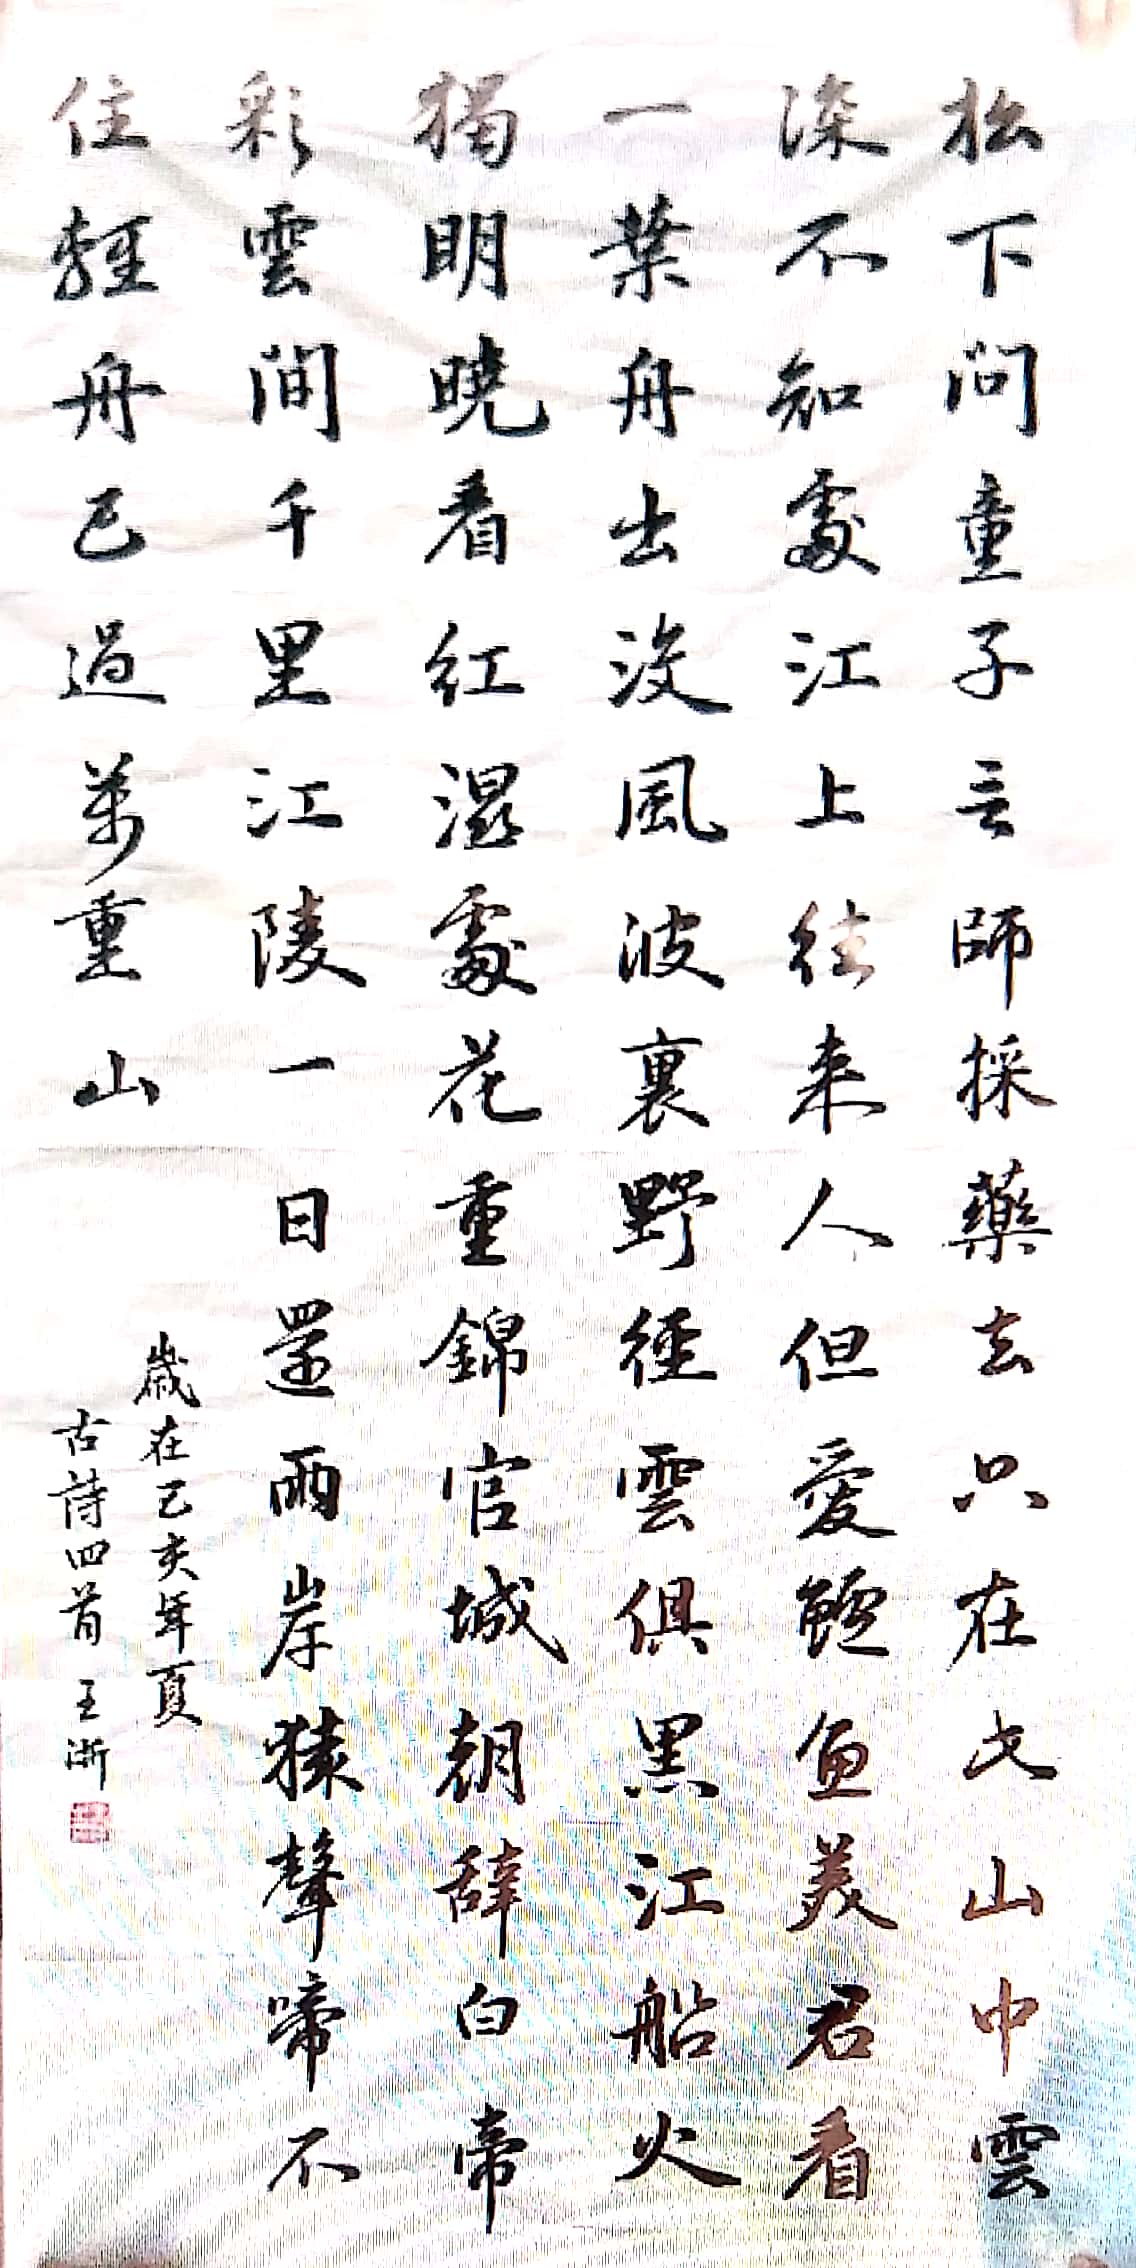 松下問童子言師採藥去只在此山中雲
深不知處江上往来人但愛鱸魚美君看
一葉舟出没風波裏野徑雲俱黑江船火
獨明曉看紅濕處花重錦官城朝辭白帝
彩雲間千里江陵一日還兩岸猿聲啼不
住輕舟已過萬重山
歲在己亥年夏
古詩四首 王浙